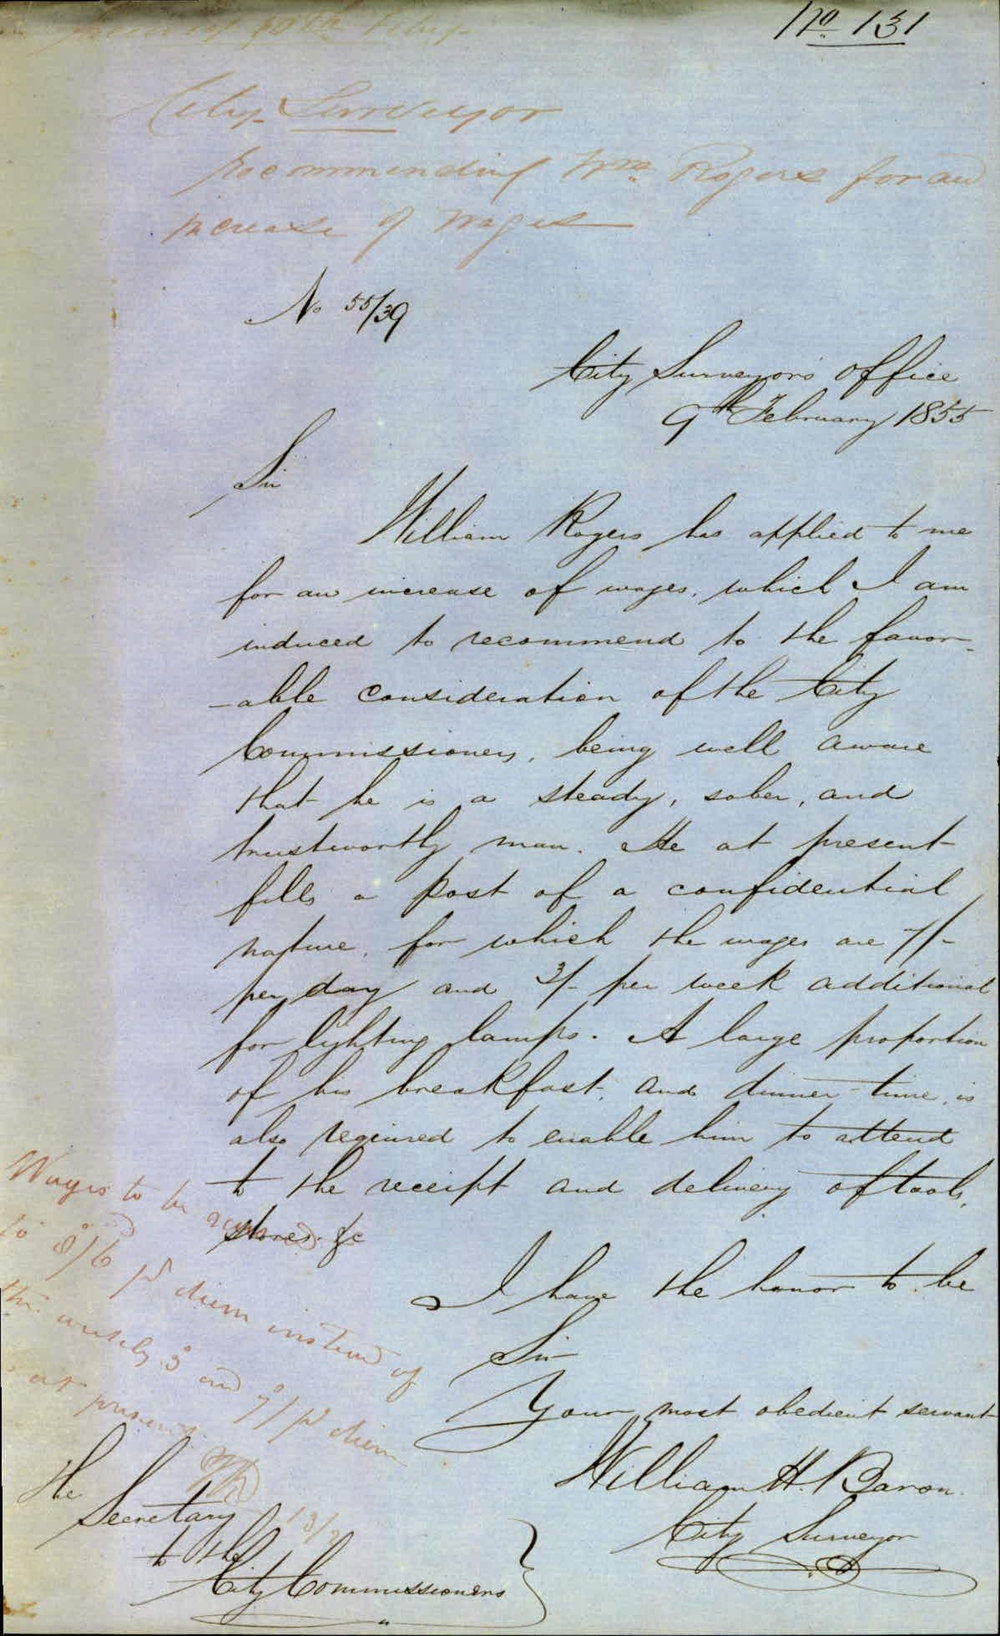 No 131
City Surveyor
recommending Wm. Rogers for an
increase of wages
No 55/39
City Surveyors Office
9th February 1855
Sir
William Rogers has applied to me
for an increase of wages, which I am
induced to recommend to the favor-
-able consideration of the City
Commissioners, being well aware
that he is a steady, sober, and
trustworthy man. He at present
fills a post of a confidential
nature, for which the wages are 7/-
per day and 3/- per week additional
for lighting lamps. A large proportion
of his breakfast, and dinner time, is
also required to enable him to attend
to the receipt and delivery of tools,
stores &c
I have the honor to be
Sir
Your most obedient servant
William H. Baron.
City Surveyor
Wages to be
to 8/6 pr diem instead of
the weekly 3/ and 7/ pr diem
at present
13/2
The
Secretary
to the
City Commissioners